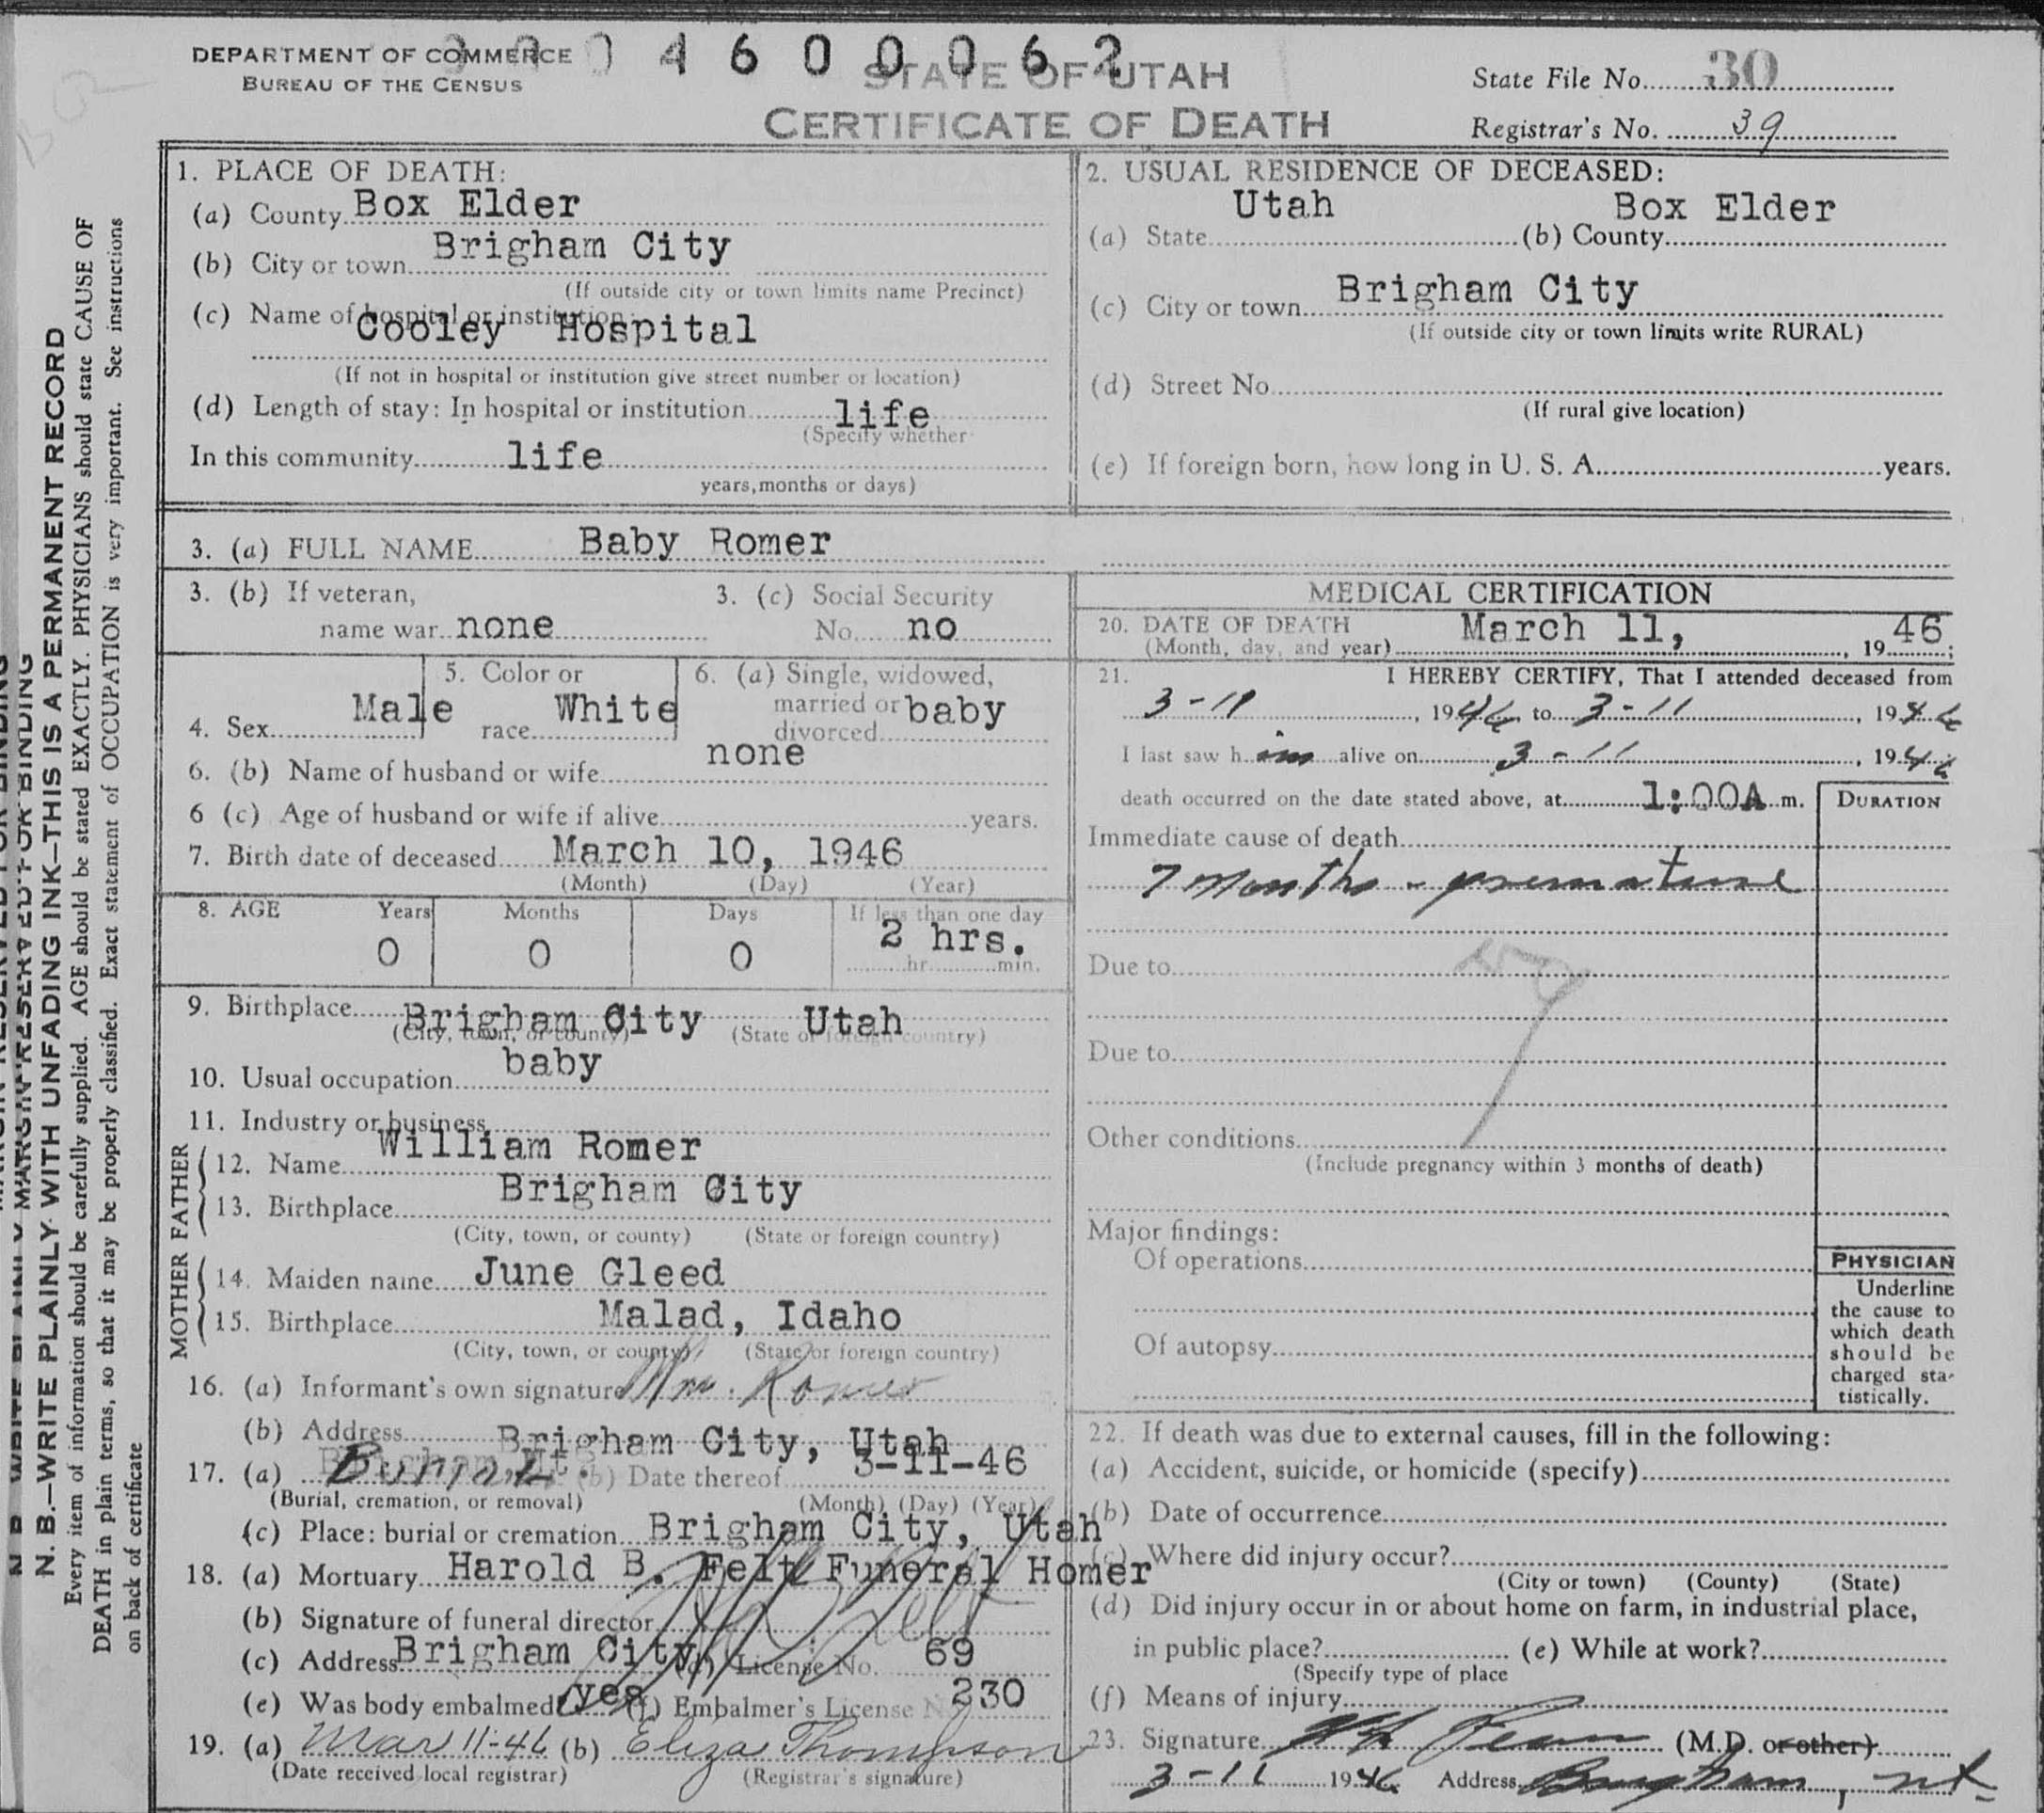 DEPARTMENT OF COMMERCE
BUREAU OF THE CENSUS
4600062
STATE OF UTAH
CERTIFICATE OF DEATH
State File No. 30
Registrar's No. 39
N. B.—WRITE PLAINLY WITH UNFADING INK—THIS IS A PERMANENT RECORD
Every item of information should be carefully supplied. AGE should be stated EXACTLY. PHYSICIANS should state CAUSE OF
DEATH in plain terms, so that it may be properly classified. Exact statement of OCCUPATION is very important. See instructions
on back of certificate
1. PLACE OF DEATH:
(a) County Box Elder
(b) City or town Brigham City
(If outside city or town limits name Precinct)
(c) Name of hospital or institution:
Cooley Hospital
(If not in hospital or institution give street number or location)
(d) Length of stay: In hospital or institution life
(Specify whether
In this community life
years, months or days)
2. USUAL RESIDENCE OF DECEASED:
(a) State Utah (b) County Box Elder
(c) City or town Brigham City
(If outside city or town limits write RURAL)
(d) Street No.
(If rural give location)
(e) If foreign born, how long in U. S. A. years.
3. (a) FULL NAME Baby Romer
3. (b) If veteran,
name war none
3. (c) Social Security
No. no
4. Sex Male
5. Color or
race White
6. (a) Single, widowed,
married or
divorced baby
6. (b) Name of husband or wife none
6 (c) Age of husband or wife if alive years.
7. Birth date of deceased March 10, 1946
(Month) (Day) (Year)
8. AGE Years Months Days If less than one day
0 0 0 2 hrs.
hr. min.
9. Birthplace Brigham City Utah
(City, town, or county) (State or foreign country)
10. Usual occupation baby
11. Industry or business
FATHER
12. Name William Romer
13. Birthplace Brigham City
(City, town, or county) (State or foreign country)
MOTHER
14. Maiden name June Gleed
15. Birthplace Malad, Idaho
(City, town, or county) (State or foreign country)
16. (a) Informant's own signature Wm. Romer
(b) Address Brigham City, Utah
17. (a) Burial (b) Date thereof 3-11-46
(Burial, cremation, or removal) (Month) (Day) (Year)
(c) Place: burial or cremation Brigham City, Utah
18. (a) Mortuary Harold B. Felt Funeral Homer
(b) Signature of funeral director
(c) Address Brigham City (d) License No. 69
(e) Was body embalmed? yes (f) Embalmer's License No. 230
19. (a) Mar 11-46 (b) Eliza Thompson
(Date received local registrar) (Registrar's signature)
MEDICAL CERTIFICATION
20. DATE OF DEATH
(Month, day, and year) March 11, , 19 46;
21. I HEREBY CERTIFY, That I attended deceased from
3-11 , 1946 to 3-11 , 1946
I last saw him alive on 3-11 , 1946
death occurred on the date stated above, at 1:00A m.
DURATION
Immediate cause of death
7 months - premature
Due to
Due to
Other conditions
(Include pregnancy within 3 months of death)
Major findings:
Of operations
Of autopsy
PHYSICIAN
Underline
the cause to
which death
should be
charged sta-
tistically.
22. If death was due to external causes, fill in the following:
(a) Accident, suicide, or homicide (specify)
(b) Date of occurrence
(c) Where did injury occur?
(City or town) (County) (State)
(d) Did injury occur in or about home on farm, in industrial place,
in public place? (e) While at work?
(Specify type of place
(f) Means of injury
23. Signature (M.D. or other)
3-11 1946 Address Brigham, Ut